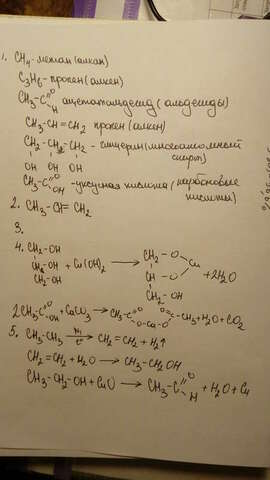 1. CH₄ - метан (алкан)
C₃H₆ - пропен (алкен)
CH₃-C=O H ацетальдегид (альдегиды)
CH₃-CH=CH₂ пропен (алкен)
CH₂-CH₂-CH₂ - глицерин (многоатомный
OH OH OH спирт)
CH₃-C=O OH - уксусная кислота (карбоновые
кислоты)
2. CH₃-CH=CH₂
3.
4. CH₂-OH
CH₂-OH + Cu(OH)₂ → CH₂-O Cu + 2H₂O
CH₂-OH CH-O
CH₂-OH
2CH₃-C=O OH + CaCO₃ → CH₃-C=O O-Ca-O O=C-CH₃ + H₂O + CO₂
5. CH₃-CH₃ → CH₂=CH₂ + H₂↑
CH₂=CH₂ + H₂O → CH₃-CH₂OH
CH₃-CH₂-OH + CuO → CH₃-C=O H + H₂O + Cu